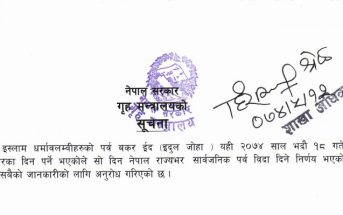 नेपाल सरकार
गृह मन्त्रालयको
सूचना
इस्लाम धर्मावलम्बीहरुको पर्व बकर ईद (इदुल जोहा ) यही २०७४ साल भदौ १८ गते
रका दिन पर्ने भएकोले सो दिन नेपाल राज्यभर सार्वजनिक पर्व बिदा दिने निर्णय भएको
सबैको जानकारीको लागि अनुरोध गरिएको छ ।
शाखा अधिकृ